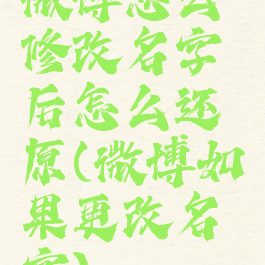 微博怎么
修改名字
后怎么还
原(微博如
果更改名
字)